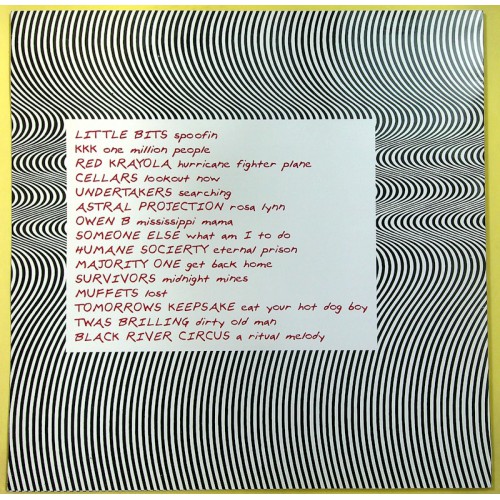 LITTLE BITS spoofin
KKK one million people
RED KRAYOLA hurricane fighter plane
CELLARS lookout now
UNDERTAKERS searching
ASTRAL PROJECTION rosa lynn
OWEN B mississippi mama
SOMEONE ELSE what am I to do
HUMANE SOCIERTY eternal prison
MAJORITY ONE get back home
SURVIVORS midnight mines
MUFFETS lost
TOMORROWS KEEPSAKE eat your hot dog boy
TWAS BRILLING dirty old man
BLACK RIVER CIRCUS a ritual melody